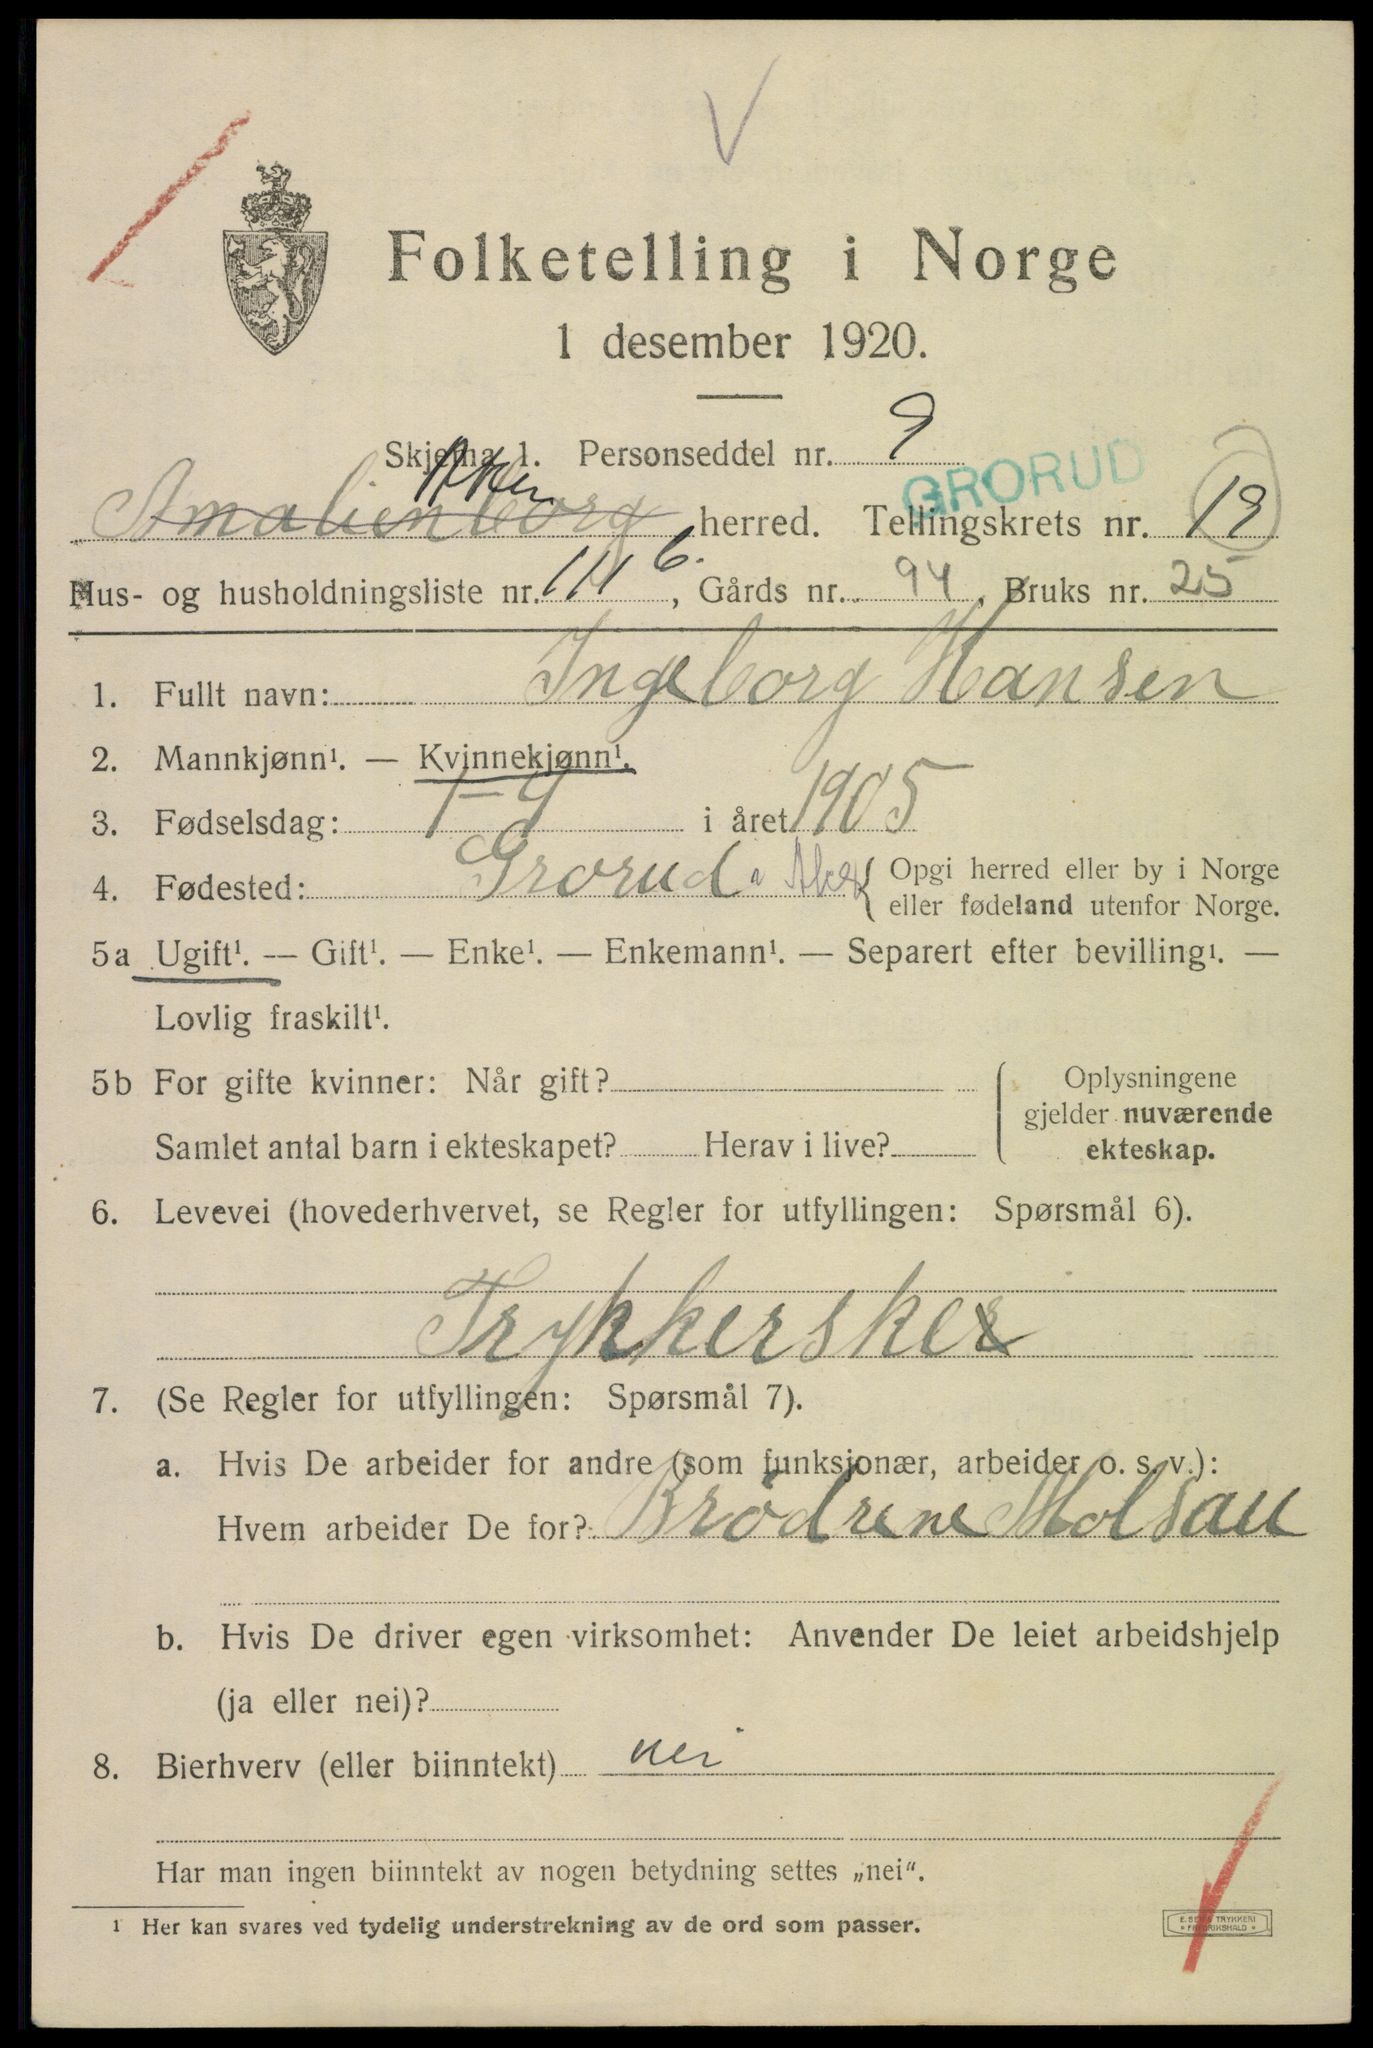 Folketelling i Norge
1 desember 1920.
Skjema 1. Personseddel nr. 9
GRORUD
Aker
Amalienborg herred. Tellingskrets nr. 19
Hus- og husholdningsliste nr. 111 6. , Gårds nr. 94 , Bruks nr. 25
1. Fullt navn: Ingeborg Hansen
2. Mannkjønn¹. — Kvinnekjønn¹.
3. Fødselsdag: 1-9 i året 1905
4. Fødested: Grorud Aker { Opgi herred eller by i Norge
eller fødeland utenfor Norge.
5a Ugift¹. — Gift¹. — Enke¹. — Enkemann¹. — Separert efter bevilling¹. —
Lovlig fraskilt¹.
5b For gifte kvinner: Når gift? { Oplysningene
gjelder nuværende
Samlet antal barn i ekteskapet? Herav i live? ekteskap.
6. Levevei (hovederhvervet, se Regler for utfyllingen: Spørsmål 6).
Trykkerske
7. (Se Regler for utfyllingen: Spørsmål 7).
a. Hvis De arbeider for andre (som funksjonær, arbeider o. s. v.):
Hvem arbeider De for? Brödrene Molsau
b. Hvis De driver egen virksomhet: Anvender De leiet arbeidshjelp
(ja eller nei)?
8. Bierhverv (eller biinntekt) nei
Har man ingen biinntekt av nogen betydning settes „nei“.
¹ Her kan svares ved tydelig understrekning av de ord som passer.
E. SEMS TRYKKERI
• FREDRIKSHALD •